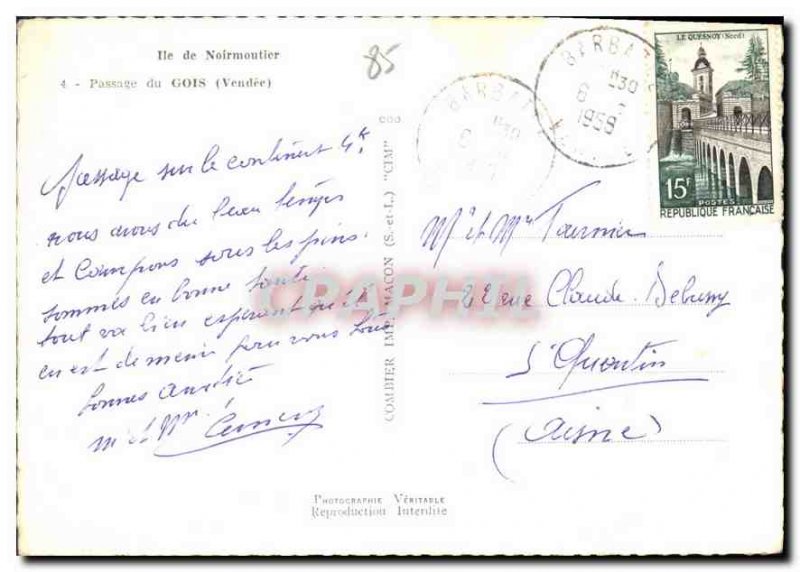 Ile de Noirmoutier
4 - Passage du GOIS (Vendée)
85
passage sur le continent
nous avons du beau temps
et campons sous les pins.
sommes en bonne santé
tout va bien espérant qu'il
en est de même pour vous tous
bonnes amitiés
Mr et Mme
COMBIER IMP. MACON (S.-et-L.) "CIM"
BARBAT
8
1958
BARBAT
LE QUESNOY (Nord)
15F
POSTES
REPUBLIQUE FRANÇAISE
Mr et Mme Tournier
rue Claude-Debussy
St Quentin
(Aisne)
CPAPHIL
PHOTOGRAPHIE VÉRITABLE
Reproduction Interdite